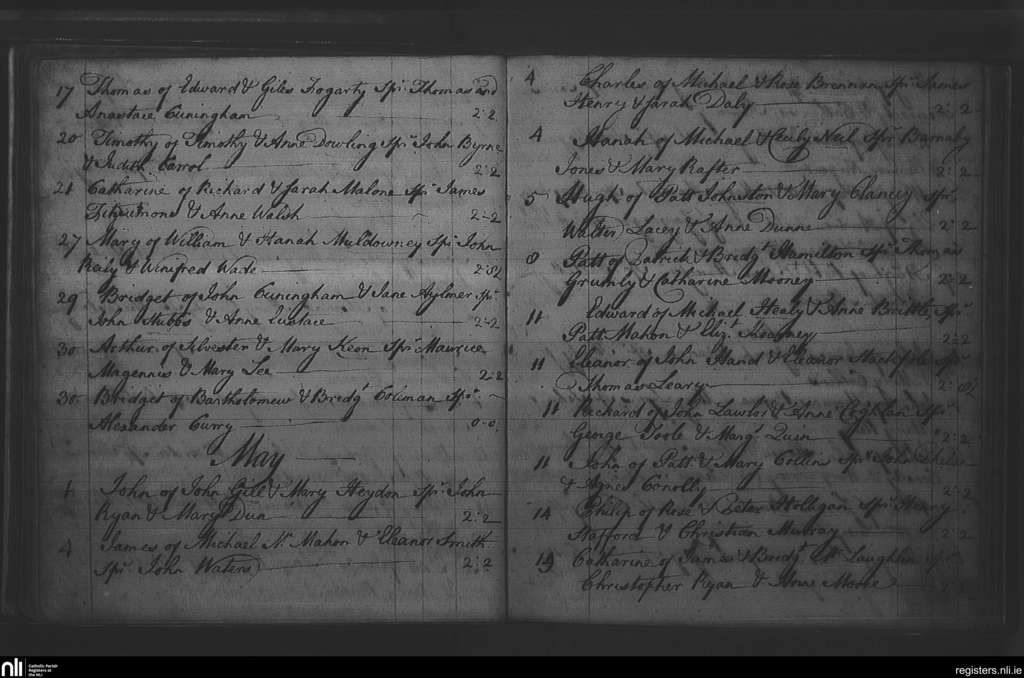 17 Thomas of Edward & Giles Fogarty Spr. Thomas and
Anastace Cuningham 2:2
20 Timothy of Timothy & Anne Dowling Spr. John Byrne
& Judith Carrol 2:2
21 Catharine of Richard & Sarah Malone Spr. James
Fitzsimons & Anne Walsh 2-2
27 Mary of William & Hanah Muldowney Spr. John
Realy & Winifred Wade 2:2
29 Bridget of John Cuningham & Jane Aylmer Spr.
John Stubbs & Anne Eustace 2-2
30 Arthur of Silvester & Mary Keon Spr. Maurice
Magennis & Mary Lee 2:2
30 Bridget of Bartholomew & Bredgt. Colman Spr.
Alexander Curry 0-0
May
1 John of John Gill & Mary Heydon Spr. John
Ryan & Mary Dun 2:2
4 James of Michael Mc. Mahon & Eleanor Smith
Spr. John Waters 2:2
4 Charles of Michael & Rose Brennan Spr. James
Henry & Sarah Daly 2:2
4 Hanah of Michael & Cecily Neil Spr. Barnaby
Jones & Mary Rafter 2:2
5 Hugh of Patt Johnston & Mary Clancey Spr.
Walter Lacey & Anne Dunne 2:2
8 Patt of Patrick & Bredgt. Hamilton Spr. Thomas
Grumly & Catharine Mooney 2:2
11 Edward of Michael Healy & Anne Brittle Spr.
Patt. Mahon & Elizt. Kearney 2:2
11 Eleanor of John Hand & Eleanor Spr.
Thomas Leary 2:
11 Richard of John Lawlor & Anne Coghlan Spr.
George Toole & Margt. Quin 2:2
11 John of Patt. & Mary Collins Spr. John
& Agnes Conolly 2:2
14 Philip of Rose & Peter Holligan Spr. Henry
Stafford & Christian Murray 2:2
19 Catharine of James & Bredgt. Mc. Laughlin Spr.
Christopher Ryan & Anne Moore
nli
Catholic Parish
Registers at
the NLI
registers.nli.ie